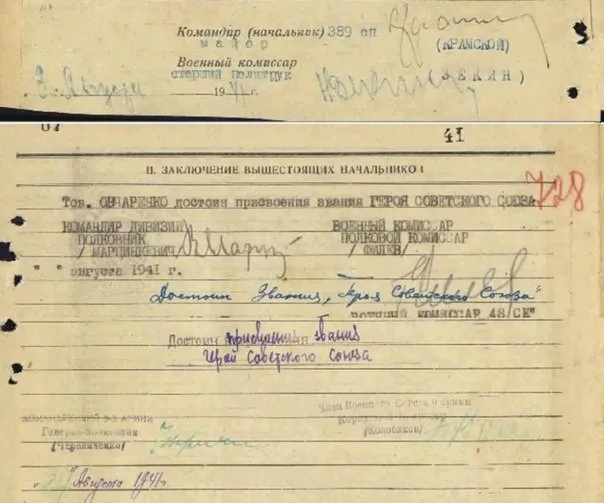 Командир (начальник) 389 сп
майор
(КРАМСКОЙ)
Военный комиссар
старший политрук
(ЗЕКИН)
3 Августа 1941 г.
41
II. ЗАКЛЮЧЕНИЕ ВЫШЕСТОЯЩИХ НАЧАЛЬНИКО
728
Тов. ОВЧАРЕНКО достоин присвоения звания ГЕРОЯ СОВЕТСКОГО СОЮЗА
КОМАНДИР ДИВИЗИИ ВОЕННЫЙ КОМИССАР
ПОЛКОВНИК ПОЛКОВОЙ КОМИССАР
/ МАРЦИНКЕВИЧ / ФИЛЕВ/
" " августа 1941 г.
Достоин Звания, Героя Советского Союза"
ВОЕННЫЙ КОМИССАР 48/СК"
Достоин присвоения звания
Герой Советского Союза
КОМАНДУЮЩИЙ 9-й АРМИИ
Генерал-Полковник
(Черевиченко)
Член Военного Совета 9 армии
(Колобяков)
Августа 1941г.